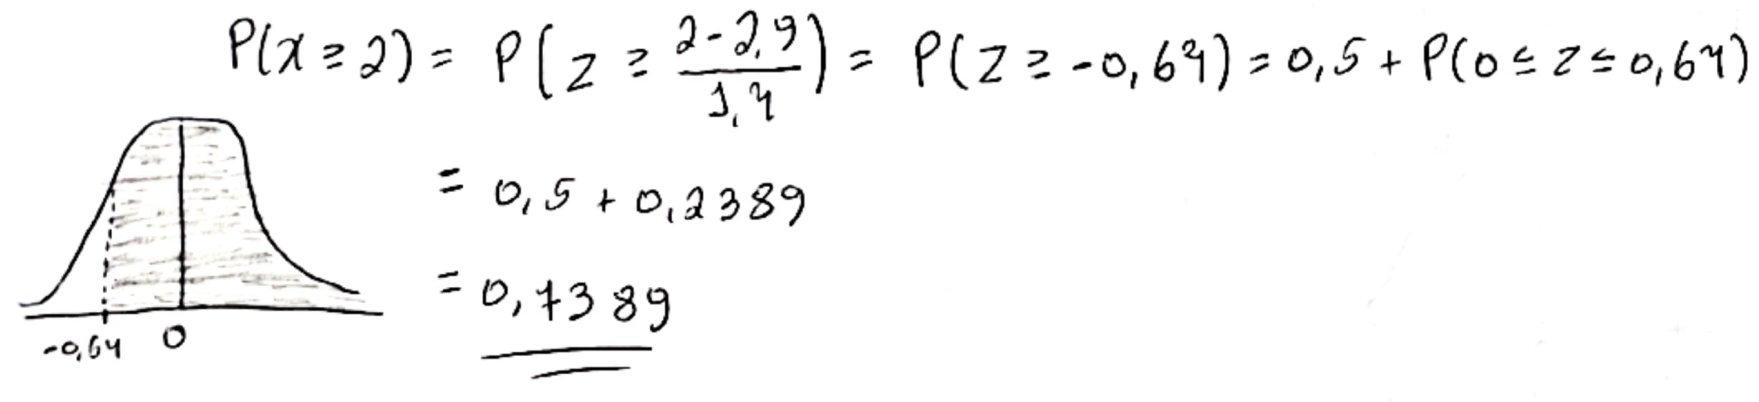 P(x ≥ 2) = P(Z ≥ (2-2,9)/1,4) = P(Z ≥ -0,64) = 0,5 + P(0 ≤ Z ≤ 0,64)
= 0,5 + 0,2389
= 0,7389
-0,64 0